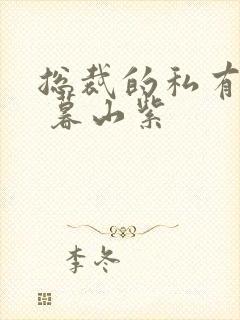 总裁的私有
暮山紫
李冬